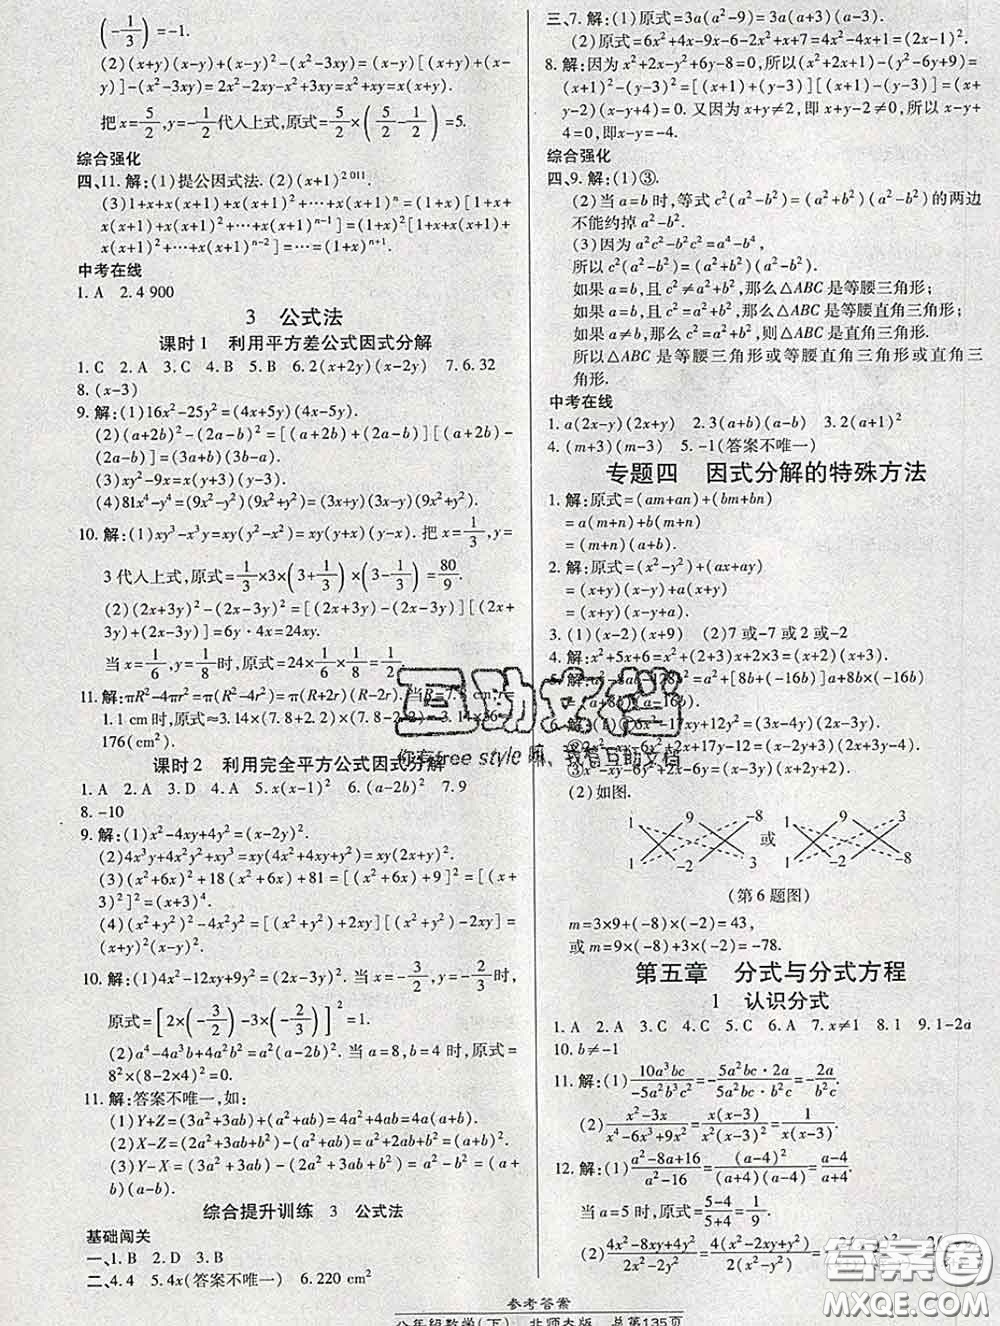 (-1/3)=-1.
(2)(x+y)(x-y)+(x-y)²-(x²-3xy)=(x-y)[(x+y)+(x-
y)]-(x²-3xy)=2x²-2xy-x²+3xy=x²+xy=x(x+y).
把x=5/2,y=-1/2代入上式,原式=5/2×(5/2-1/2)=5.
综合强化
四、11.解:(1)提公因式法.(2)(x+1)²⁰¹¹.
(3)1+x+x(x+1)+x(x+1)²+…+x(x+1)ⁿ=(1+x)[1+x+
x(x+1)+x(x+1)²+…+x(x+1)ⁿ⁻¹]=(1+x)²[1+x+
x(x+1)²+…+x(x+1)ⁿ⁻²]=…=(1+x)ⁿ⁺¹.
中考在线
1.A 2.4 900
3 公式法
课时1 利用平方差公式因式分解
1.C 2.A 3.C 4.B 5.B 6.2(x+2y)(x-2y) 7.6.32
8.(x-3)
9.解:(1)16x²-25y²=(4x+5y)(4x-5y).
(2)(a+2b)²-(2a-b)²=[(a+2b)+(2a-b)][(a+2b)-
(2a-b)]=(3a+b)(3b-a).
(3)xy²-4x=x(y²-4)=x(y+2)(y-2).
(4)81x⁴-y⁴=(9x²-y²)(9x²+y²)=(3x+y)(3x-y)(9x²+y²).
10.解:(1)xy³-x³y=xy(y²-x²)=xy(y+x)(y-x).把x=1/3,y=
3代入上式,原式=1/3×3×(3+1/3)×(3-1/3)=80/9.
(2)(2x+3y)²-(2x-3y)²=[(2x+3y)-(2x-3y)][(2x+
3y)+(2x-3y)]=6y·4x=24xy.
当x=1/6,y=1/8时,原式=24×1/6×1/8=1/2.
11.解:πR²-4πr²=π(R²-4r²)=π(R+2r)(R-2r).当R=7.8cm,r=
1.1cm时,原式≈3.14×(7.8+2.2)×(7.8-2.2)=3.14×56≈
176(cm²).
课时2 利用完全平方公式因式分解
1.A 2.A 3.D 4.A 5.x(x-1)² 6.(a-2b)² 7.9
8.-10
9.解:(1)x²-4xy+4y²=(x-2y)².
(2)4x³y+4x²y²+xy³=xy(4x²+4xy+y²)=xy(2x+y)².
(3)(x²+6x)²+18(x²+6x)+81=[(x²+6x)+9]²=[(x+
3)²]²=(x+3)⁴.
(4)(x²+y²)²-4x²y²=[(x²+y²)+2xy][(x²+y²)-2xy]=
(x+y)²(x-y)².
10.解:(1)4x²-12xy+9y²=(2x-3y)².当x=-3/2,y=-2/3时,
原式=[2×(-3/2)-3×(-2/3)]²=1.
(2)a³-4a²b+4ab²=a(a-2b)².当a=8,b=4时,原式=
8²×(8-2×4)²=0.
11.解:答案不唯一,如:
(1)Y+Z=(3a²+3ab)+(a²+ab)=4a²+4ab=4a(a+b).
(2)X-Z=(2a²+3ab+b²)-(a²+ab)=a²+2ab+b²=(a+b)².
(3)Y-X=(3a²+3ab)-(2a²+3ab+b²)=a²-b²=(a+
b)(a-b).
综合提升训练 3 公式法
基础闯关
一、1.B 2.D 3.B
二、4.4 5.4x(答案不唯一) 6.220 cm²
三、7.解:(1)原式=3a(a²-9)=3a(a+3)(a-3).
(2)原式=6x²+4x-9x-6-2x²+x+7=4x²-4x+1=(2x-1)².
8.解:因为x²+2x-y²+6y-8=0,所以(x²+2x+1)-(y²-6y+9)=
(x+1)²-(y-3)²=[(x+1)+(y-3)][(x+1)-(y-3)]=(x+
y-2)(x-y+4)=0.又因为x+y≠2,即x+y-2≠0,所以x-y+
4=0,即x-y=-4.
综合强化
四、9.解:(1)③.
(2)当a=b时,等式c²(a²-b²)=(a²+b²)(a²-b²)的两边
不能约掉a²-b².
(3)因为a²c²-b²c²=a⁴-b⁴,
所以c²(a²-b²)=(a²+b²)(a²-b²),
如果a=b,且c²≠a²+b²,那么△ABC是等腰三角形;
如果a=b,且c²=a²+b²,那么△ABC是等腰直角三角形;
如果a≠b,那么c²=a²+b²,则△ABC是直角三角形.
所以△ABC是等腰三角形或等腰直角三角形或直角三
角形.
中考在线
1.a(2x-y)(2x+y) 2.3(a+b)(a-b) 3.2(a+1)²
4.(m+3)(m-3) 5.-1(答案不唯一)
专题四 因式分解的特殊方法
1.解:原式=(am+an)+(bm+bn)
=a(m+n)+b(m+n)
=(m+n)(a+b).
2.解:原式=(x²-y²)+(ax+ay)
=(x+y)(x-y)+a(x+y)
=(x+y)(x-y+a).
3.(1)(x-2)(x+9) (2)7或-7或2或-2
4.解:x²+5x+6=x²+(2+3)x+2×3=(x+2)(x+3).
5.解:
6.
(2)如图.
1 9 -8 1 3 -8
或
1 3 -2 1 9
-2 -8
(第6题图)
m=3×9+(-8)×(-2)=43,
或m=9×(-8)+3×(-2)=-78.
第五章 分式与分式方程
1 认识分式
1.A 2.A 3.C 4.C 5.C 6.A 7.x≠1 8.1 9.1-2a
10.b≠-1
11.解:(1)10a³bc/-5a²b²c²=-5a²bc·2a/5a²bc·b²c=-2a/b²c.
(2)x²-3x/x⁴-6x³+9x²=x(x-3)/x²(x-3)²=1/x²-3x.
12.解:(1)a²-8a+16/a²-16=(a-4)²/(a+4)(a-4)=a-4/a+4.
当a=5时,原式=5-4/5+4=1/9.
(2)4x²-8xy+4y²/2x²-2y²=4(x²-2xy+y²)
互助文档
你有free style嘛,我有互助文档
答案圈
MXQE.COM
参考答案
八年级数学(下) 北师大版 总第135页